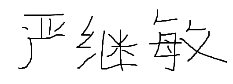 严继敏